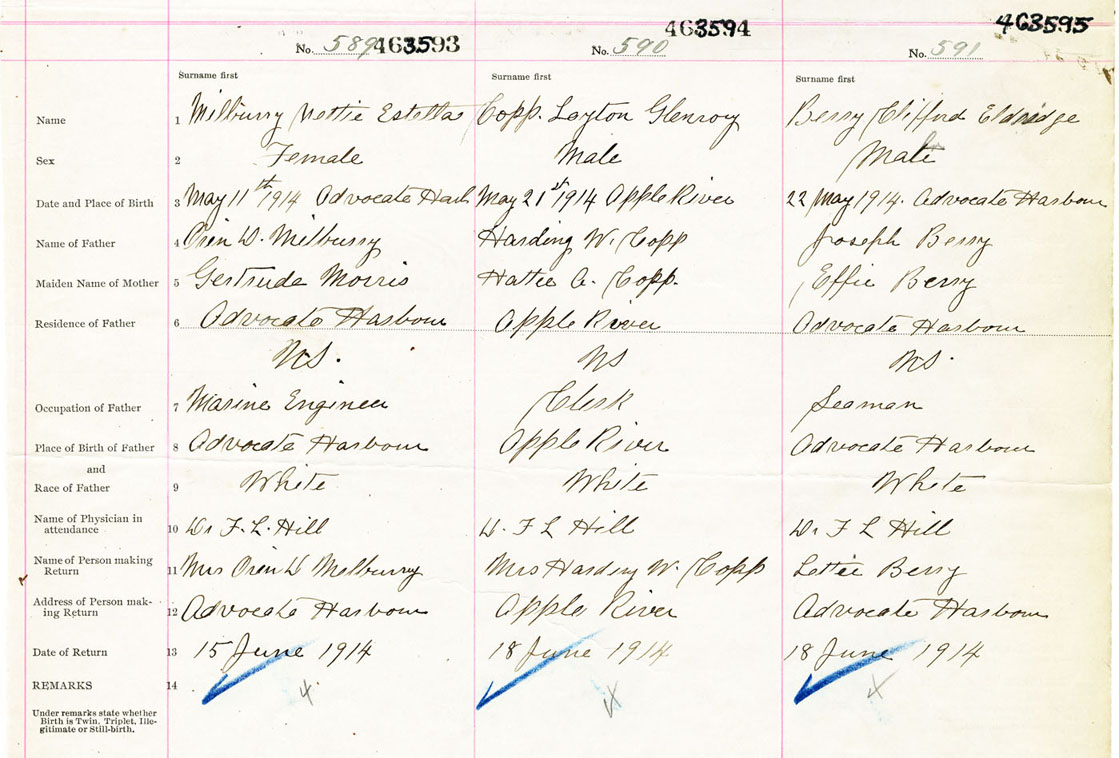 No. 589 463593 No. 590 463594 No. 591 463595
Surname first Surname first Surname first
Name 1 Milburry Nettie Estella Copp. Layton Glenroy Berry Clifford Eldridge
Sex 2 Female Male Male
Date and Place of Birth 3 May 11th 1914 Advocate Harb May 21st 1914 Apple River 22 May 1914. Advocate Harbour
Name of Father 4 Orin D. Milburry Harding W. Copp Joseph Berry
Maiden Name of Mother 5 Gertrude Morris Hattie A. Copp. Effie Berry
Residence of Father 6 Advocate Harbour Apple River Advocate Harbour
NS. NS NS.
Occupation of Father 7 Marine Engineer Clerk Seaman
Place of Birth of Father 8 Advocate Harbour Apple River Advocate Harbour
and
Race of Father 9 White White White
Name of Physician in
attendance 10 Dr F. L. Hill D. F L Hill Dr F L Hill
Name of Person making
Return 11 Mrs Orin D Milburry Mrs Harding W. Copp Lettie Berry
Address of Person mak-
ing Return 12 Advocate Harbour Apple River Advocate Harbour
Date of Return 13 15 June 1914 18 June 1914 18 June 1914
REMARKS 14
Under remarks state whether
Birth is Twin, Triplet, Ille-
gitimate or Still-birth.